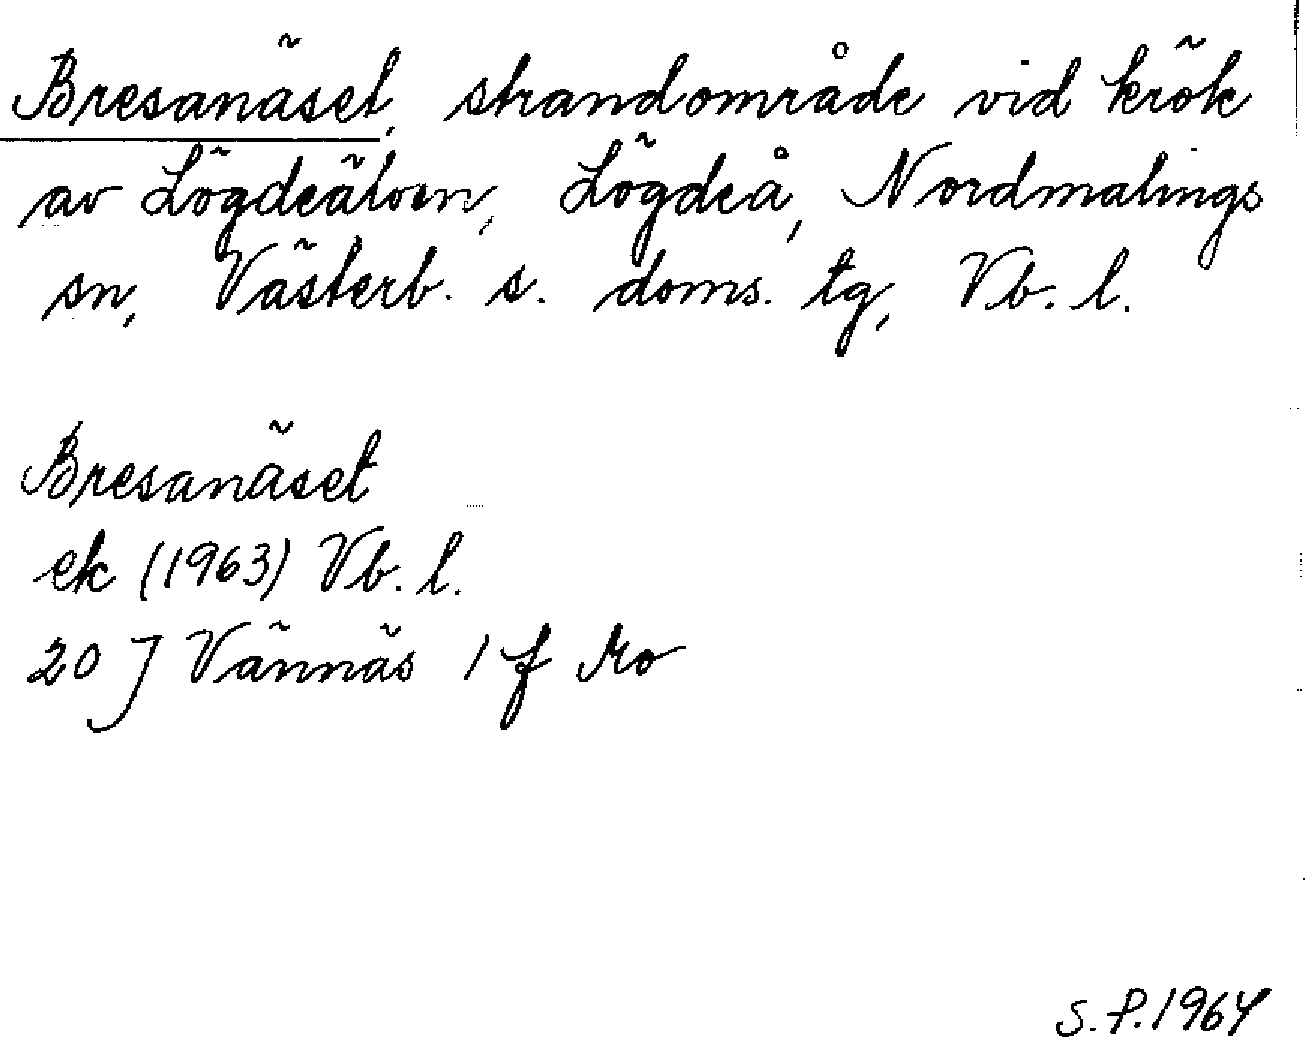 Bresanäset, strandområde vid krök
av Lögdeälven, Lögdeå, Nordmalings
sn, Västerb. s. doms. tg, Vb. l.
Bresanäset
ek (1963) Vb. l.
20 J Vännäs 1 f No
S.P.1964